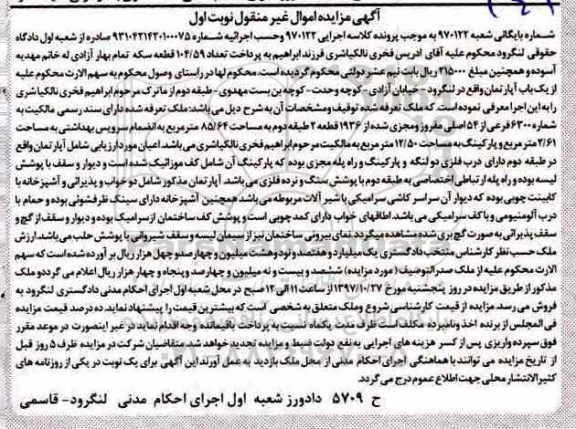 آگهی مزایده اموال غیر منقول نوبت اول
شماره بایگانی شعبه ۹۷۰۱۲۲ به موجب پرونده کلاسه اجرایی ۹۷۰۱۲۲ وحسب اجرائیه شماره ۹۳۱۰۴۲۱۴۲۰۱۰۰۰۷۵ صادره از شعبه اول دادگاه
حقوقی لنگرود محکوم علیه آقای ادریس فخری نالکیاشری فرزند ابراهیم به پرداخت تعداد ۱۰۴/۵۹ قطعه سکه تمام بهار آزادی له خانم مهدیه
آسوده و همچنین مبلغ ۲۱۵۰۰۰ ریال بابت نیم عشر دولتی محکوم گردیده است. محکوم لها در راستای وصول محکوم به سهم الارث محکوم علیه
از یک باب آپارتمان واقع در لنگرود - خیابان آزادی - کوچه وحدت - کوچه بن بست مهدوی - طبقه دوم از ماترک مرحوم ابراهیم فخری نالکیاشری
را به این اجرا معرفی نموده است. که ملک تعرفه شده توقیف ومشخصات آن به شرح ذیل می باشد: ملک تعرفه شده دارای سند رسمی مالکیت به
شماره ۶۳۰۰ فرعی از ۵۴ اصلی مفروز ومجزی شده از ۱۹۳۶ قطعه ۲ طبقه دوم به مساحت ۸۵/۶۴ متر مربع به انضمام سرویس بهداشتی به مساحت
۲/۶۱ متر مربع و پارکینگ به مساحت ۱۲/۵۰ متر مربع به مالکیت مرحوم ابراهیم فخری نالکیاشری می باشد. اعیان مورد ارزیابی شامل آپارتمان واقع
در طبقه دوم دارای درب فلزی دو لنگه و پارکینگ و راه پله مجزی بوده که پارکینگ آن شامل کف موزائیک شده است و دیوار و سقف با پوشش
لیسه بوده و راه پله ارتباطی اختصاصی به طبقه دوم با پوشش سنگ و نرده فلزی می باشد. آپارتمان مذکور شامل دو خواب و پذیرائی و آشپزخانه با
کابینت چوبی بوده که دیوار آن سراسر کاشی سرامیکی با شیر آلات مربوطه می باشد همچنین آشپزخانه دارای سینک ظرفشوئی بوده و حمام با
درب آلومنیومی و با کف سرامیکی می باشد. اطاقهای خواب دارای کمد چوبی است و پوشش کف ساختمان از سرامیک بوده و دیوار و سقف از گچ و
سقف پذیرائی به صورت گچ بری شده مشاهده میگردد نمای بیرونی ساختمان نیز از سیمان لیسه و سقف شیروانی با پوشش حلب می باشد. ارزش
ملک حسب نظر کارشناس منتخب دادگستری یک میلیارد و هفتصد و نود وهشت میلیون و چهارصدو چهل هزار ریال بر آورده شده است که سهم
الارث محکوم علیه از ملک صدرالتوصیف (مورد مزایده) ششصد و بیست و نه میلیون و چهارصد وپنجاه و چهار هزار ریال اعلام می گردد و ملک
مذکور از طریق مزایده در روز پنجشنبه مورخ ۱۳۹۷/۱۰/۲۷ از ساعت ۱۱ الی ۱۲ صبح در محل شعبه اول اجرای احکام مدنی دادگستری لنگرود به
فروش می رسد. مزایده از قیمت کارشناسی شروع وملک متعلق به شخصی است که بیشترین قیمت را پیشنهاد نماید. ده درصد قیمت مزایده
فی المجلس از برنده اخذ ونامبرده مکلف است ظرف مدت یکماه نسبت به پرداخت باقیمانده وجه اقدام نماید در غیر اینصورت در موعد مقرر
فوق سپرده واریزی پس از کسر هزینه های اجرایی به نفع دولت ضبط و مزایده تجدید خواهد شد. متقاضیان شرکت در مزایده ظرف ۵ روز قبل
از تاریخ مزایده می توانند با هماهنگی اجرای احکام مدنی از محل ملک بازدید به عمل آورند این آگهی برای یک نوبت در یکی از روزنامه های
کثیرالانتشار محلی جهت اطلاع عموم درج می گردد.
ح ۵۷۰۹ دادورز شعبه اول اجرای احکام مدنی لنگرود - قاسمی